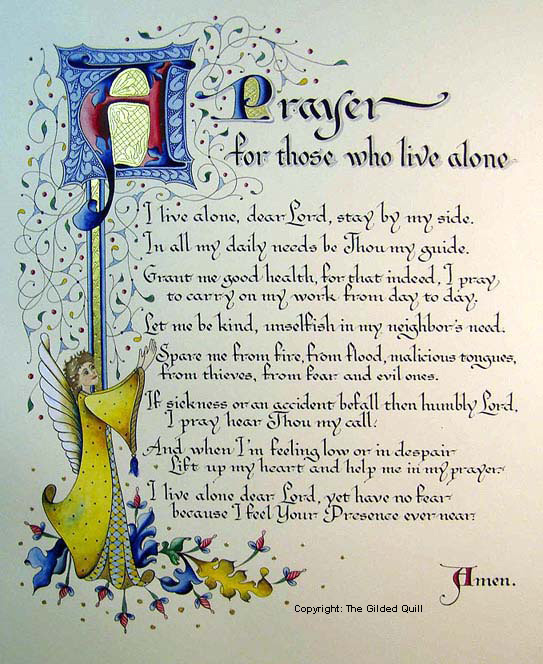 A Prayer
for those who live alone
I live alone, dear Lord, stay by my side.
In all my daily needs be Thou my guide.
Grant me good health, for that indeed, I pray
to carry on my work from day to day.
Let me be kind, unselfish in my neighbor's need.
Spare me from fire, from flood, malicious tongues,
from thieves, from fear and evil ones.
If sickness or an accident befall then humbly Lord,
I pray hear Thou my call.
And when I'm feeling low or in despair
Lift up my heart and help me in my prayer.
I live alone dear Lord, yet have no fear
because I feel Your Presence ever near.
Amen.
Copyright: The Gilded Quill